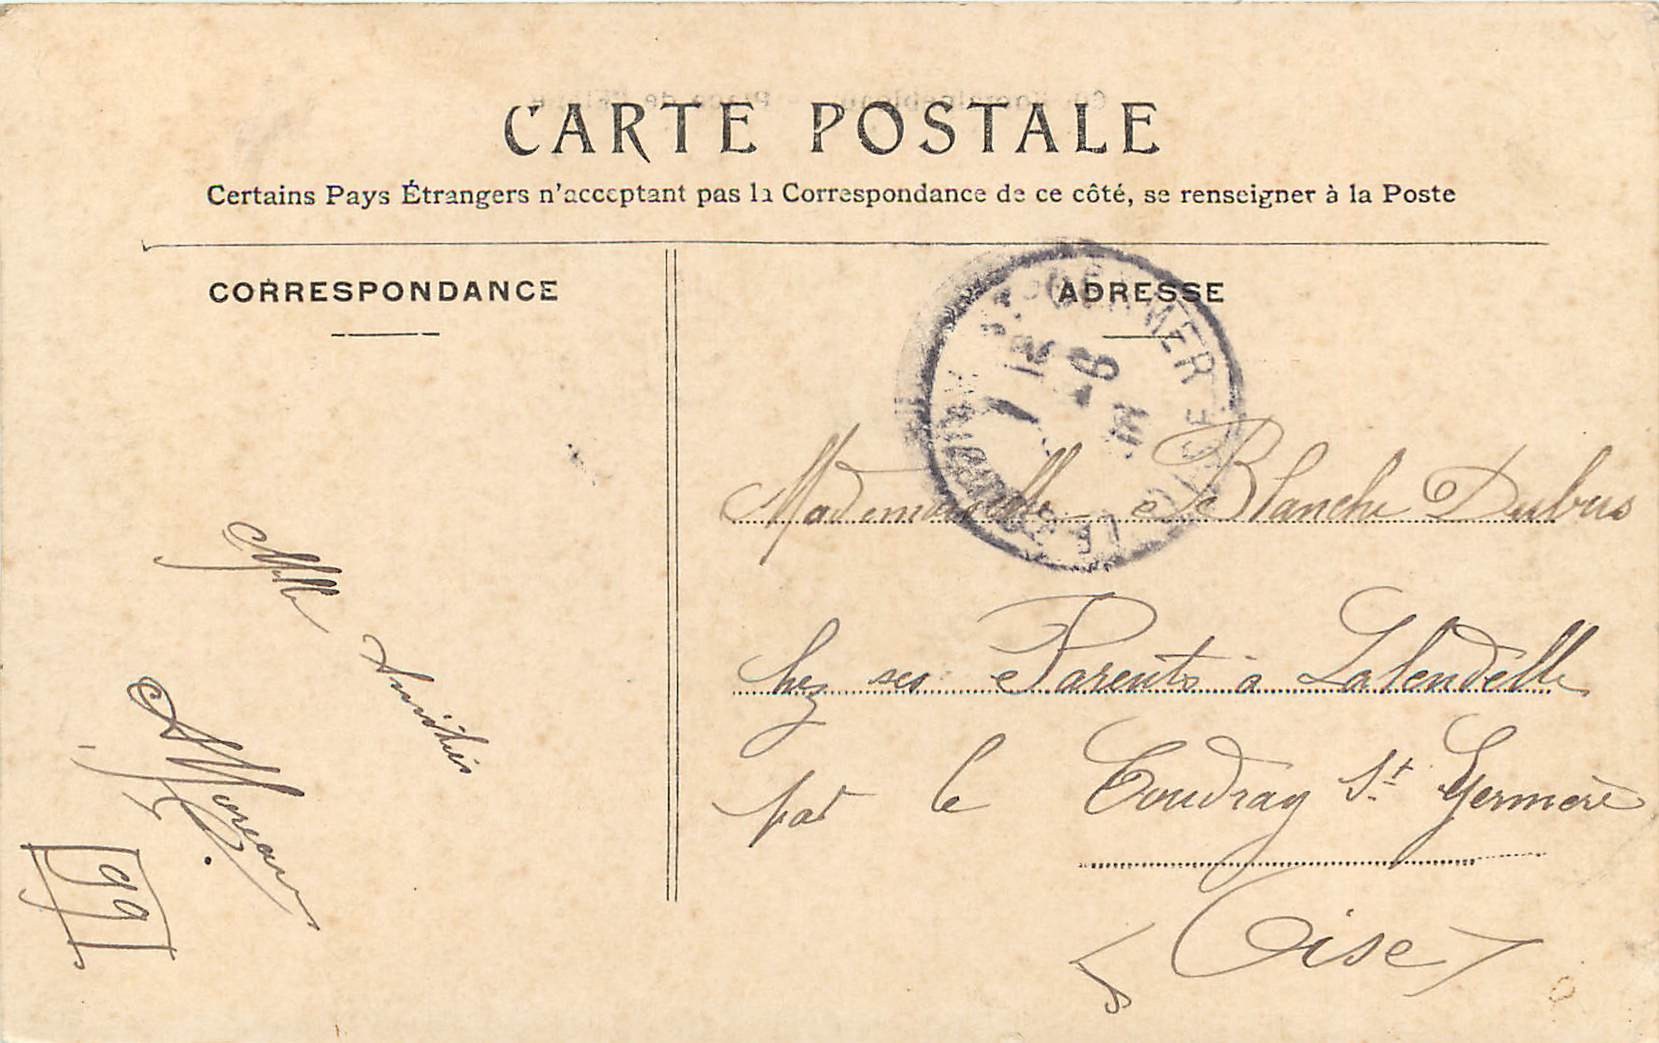 CARTE POSTALE
Certains Pays Étrangers n'acceptant pas la Correspondance de ce côté, se renseigner à la Poste
CORRESPONDANCE
Mille
Amitiés
Moreau
99
ADRESSE
GERMER
LE
OISE
Mademoiselle Blanche Dubus
chez ses Parents à Lalendelle
par le Coudray St. Germer
Oise